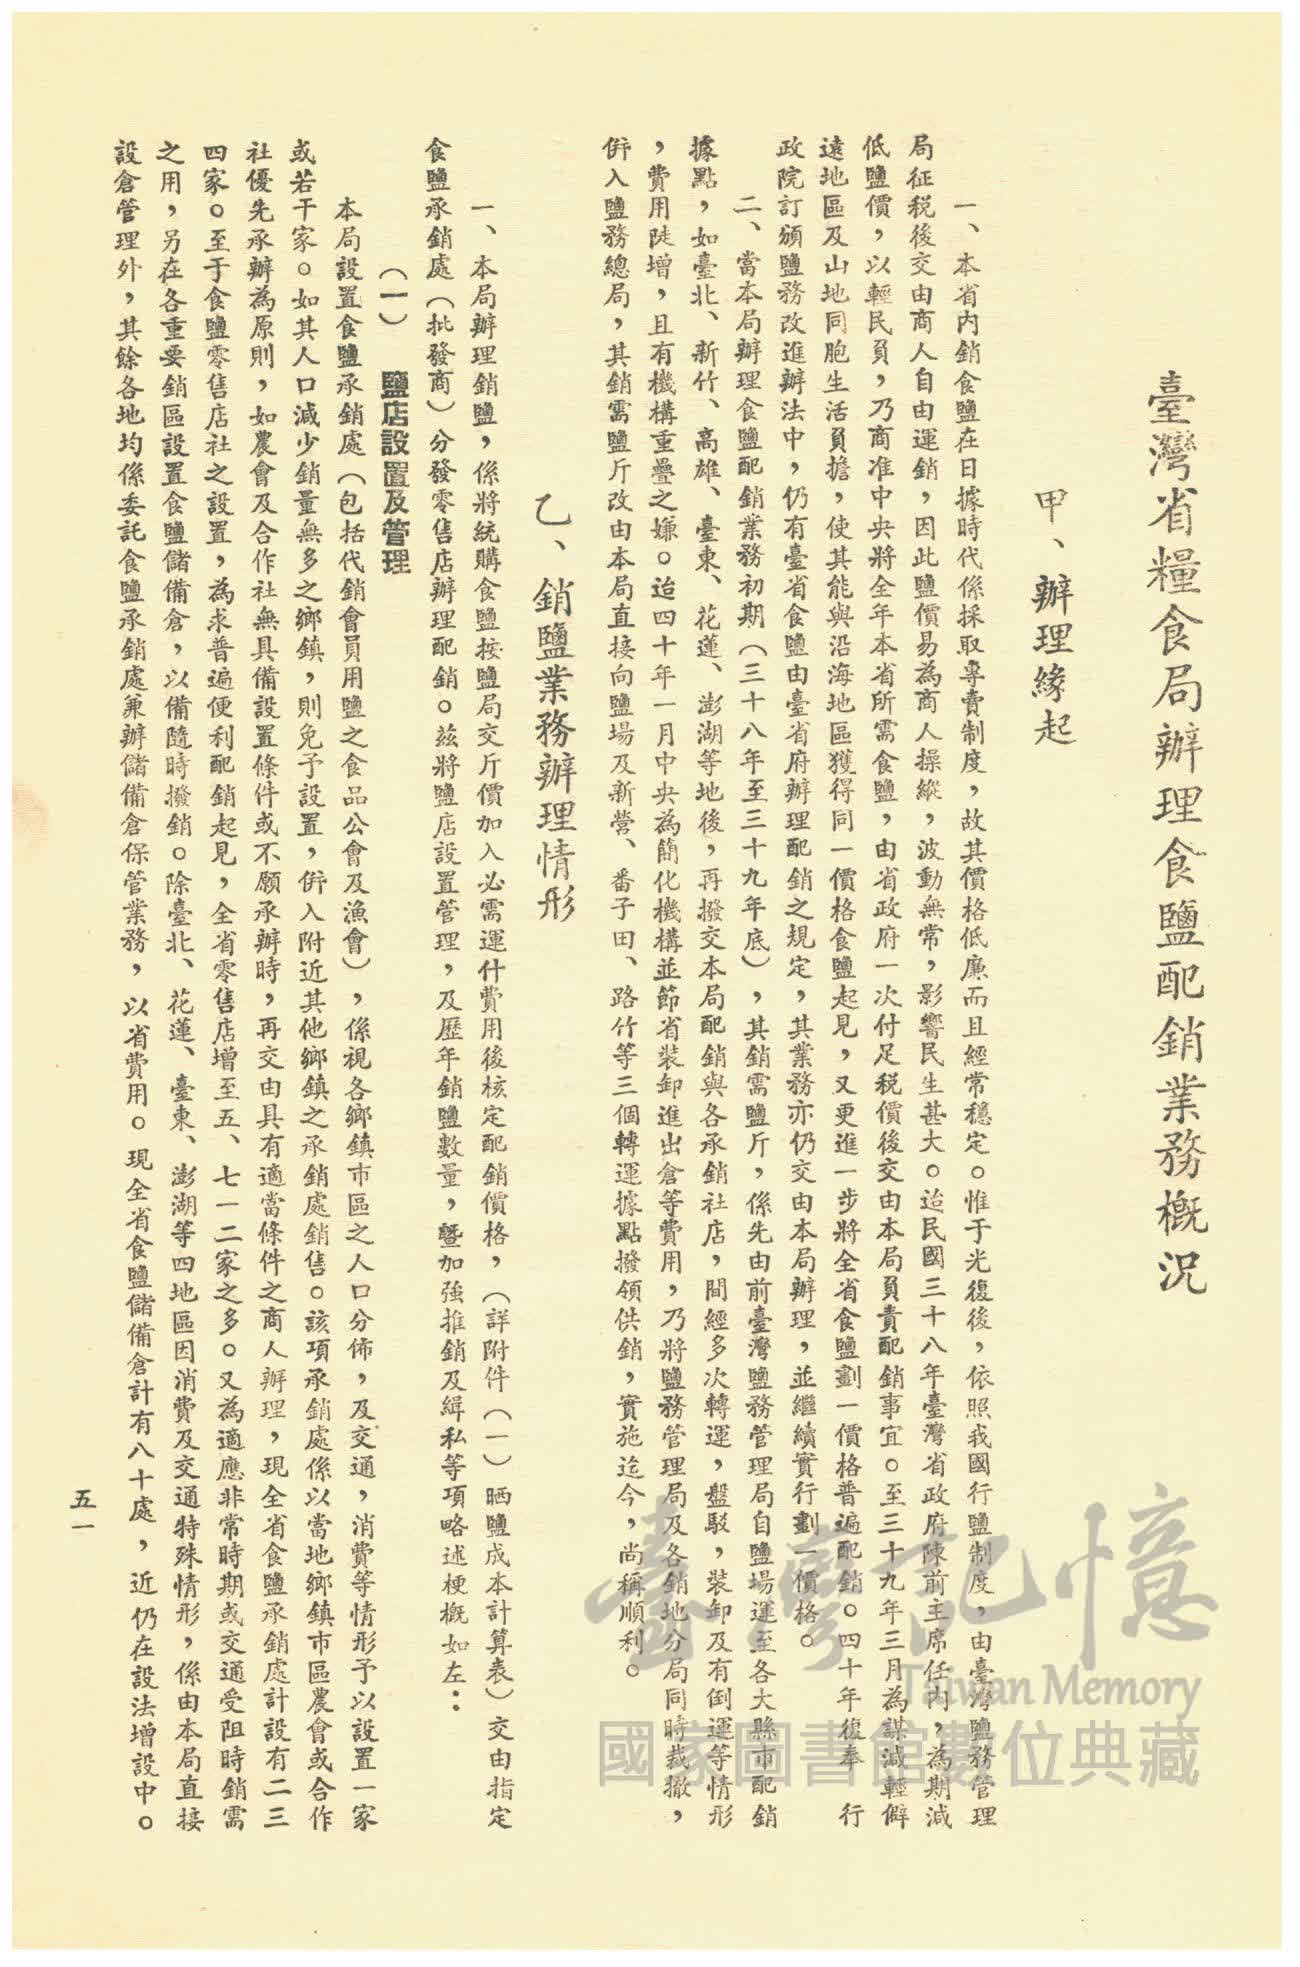 臺灣省糧食局辦理食鹽配銷業務概況
甲、辦理緣起
一、本省內銷食鹽在日據時代係採取專賣制度，故其價格低廉而且經常穩定。惟于光復後，依照我國行鹽制度，由臺灣鹽務管理
局征稅後交由商人自由運銷，因此鹽價易為商人操縱，波動無常，影響民生甚大。迨民國三十八年臺灣省政府陳前主席任內，為期減
低鹽價，以輕民負，乃商准中央將全年本省所需食鹽，由省政府一次付足稅價後交由本局負責配銷事宜。至三十九年三月為謀減輕僻
遠地區及山地同胞生活負擔，使其能與沿海地區獲得同一價格食鹽起見，又更進一步將全省食鹽劃一價格普遍配銷。四十年復奉　行
政院訂頒鹽務改進辦法中，仍有臺省食鹽由臺省府辦理配銷之規定，其業務亦仍交由本局辦理，並繼續實行劃一價格。
二、當本局辦理食鹽配銷業務初期（三十八年至三十九年底），其銷需鹽斤，係先由前臺灣鹽務管理局自鹽場運至各大縣市配銷
據點，如臺北、新竹、高雄、臺東、花蓮、澎湖等地後，再撥交本局配銷與各承銷社店，間經多次轉運，盤駁，裝卸及有倒運等情形
，費用陡增，且有機構重疊之嫌。迨四十年一月中央為簡化機構並節省裝卸進出倉等費用，乃將鹽務管理局及各銷地分局同時裁撤，
併入鹽務總局，其銷需鹽斤改由本局直接向鹽場及新營、番子田、路竹等三個轉運據點撥領供銷，實施迄今，尚稱順利。
乙、銷鹽業務辦理情形
一、本局辦理銷鹽，係將統購食鹽按鹽局交斤價加入必需運什費用後核定配銷價格，（詳附件（一）晒鹽成本計算表）交由指定
食鹽承銷處（批發商）分發零售店辦理配銷。茲將鹽店設置管理，及歷年銷鹽數量，暨加強推銷及緝私等項略述梗概如左：
（一）鹽店設置及管理
本局設置食鹽承銷處（包括代銷會員用鹽之食品公會及漁會），係視各鄉鎮市區之人口分佈，及交通，消費等情形予以設置一家
或若干家。如其人口減少銷量無多之鄉鎮，則免予設置，併入附近其他鄉鎮之承銷處銷售。該項承銷處係以當地鄉鎮市區農會或合作
社優先承辦為原則，如農會及合作社無具備設置條件或不願承辦時，再交由具有適當條件之商人辦理，現全省食鹽承銷處計設有二三
四家。至于食鹽零售店社之設置，為求普遍便利配銷起見，全省零售店增至五、七一二家之多。又為適應非常時期或交通受阻時銷需
之用，另在各重要銷區設置食鹽儲備倉，以備隨時撥銷。除臺北、花蓮、臺東、澎湖等四地區因消費及交通特殊情形，係由本局直接
設倉管理外，其餘各地均係委託食鹽承銷處兼辦儲備倉保管業務，以省費用。現全省食鹽儲備倉計有八十處，近仍在設法增設中。
五一
臺灣記憶
Taiwan Memory
國家圖書館數位典藏